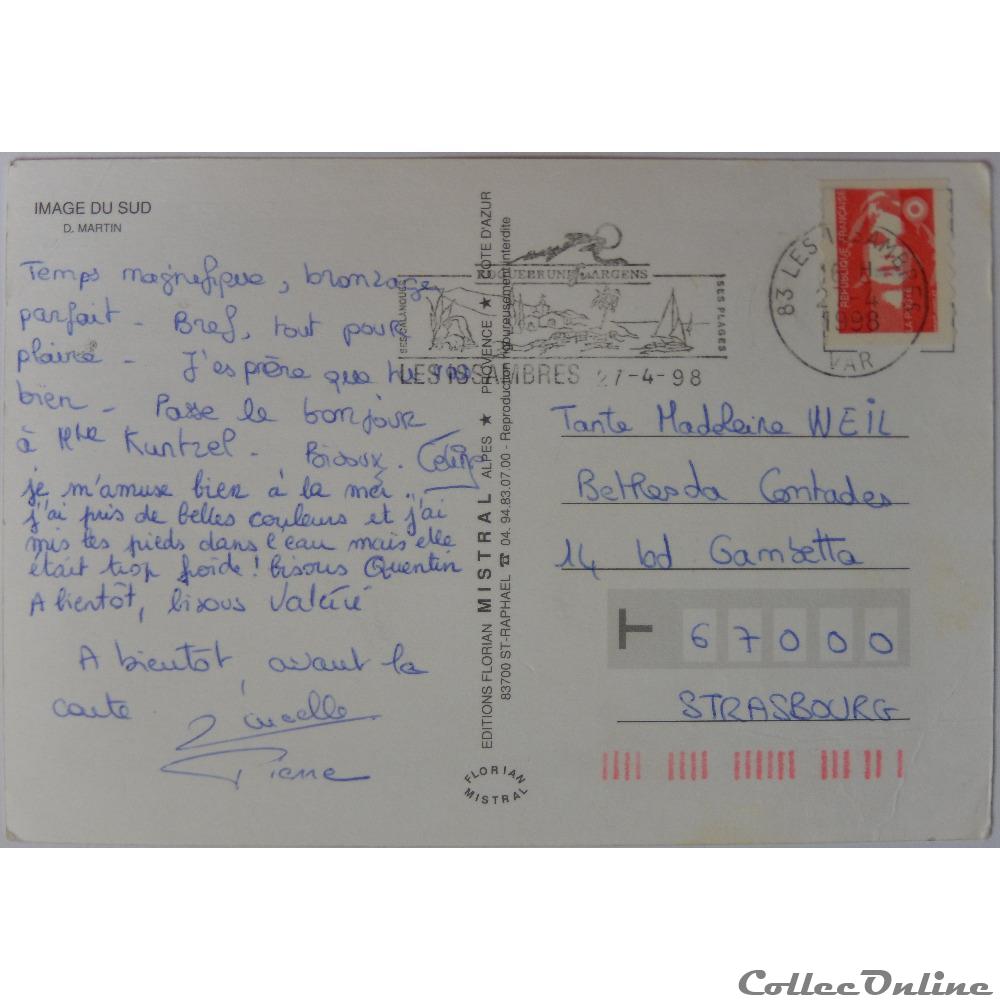 IMAGE DU SUD
D. MARTIN
Temps magnefique, bronzage
parfait - Bref, tout pour
plaire - J'esprère que tu vas
bien - Passe le bonjour
à Mme Kuntzel - Bisoux.
je m'amuse bien à la mer.
j'ai pris de belles couleurs et j'ai
mis les pieds dans l'eau mais elle
était trop froide! bisous Quentin
A bientôt, bisous Valérie
A bientôt, avant la
carte
Pierre
EDITIONS FLORIAN MISTRAL ALPES ★ PROVENCE ★ COTE D'AZUR
83700 ST-RAPHAEL ☎ 04. 94.83.07.00 - Reproduction rigoureusement interdite
FLORIAN
MISTRAL
ROQUEBRUNE S/ ARGENS
SES CALANQUES
SES PLAGES
LES ISSAMBRES 27-4-98
83 LES ISSAMBRES
1998
VAR
REPUBLIQUE FRANÇAISE
LA POSTE
Tante Madeleine WEIL
Bethesda Contades
14 bd Gambetta
T 67000
STRASBOURG
CollecOnline